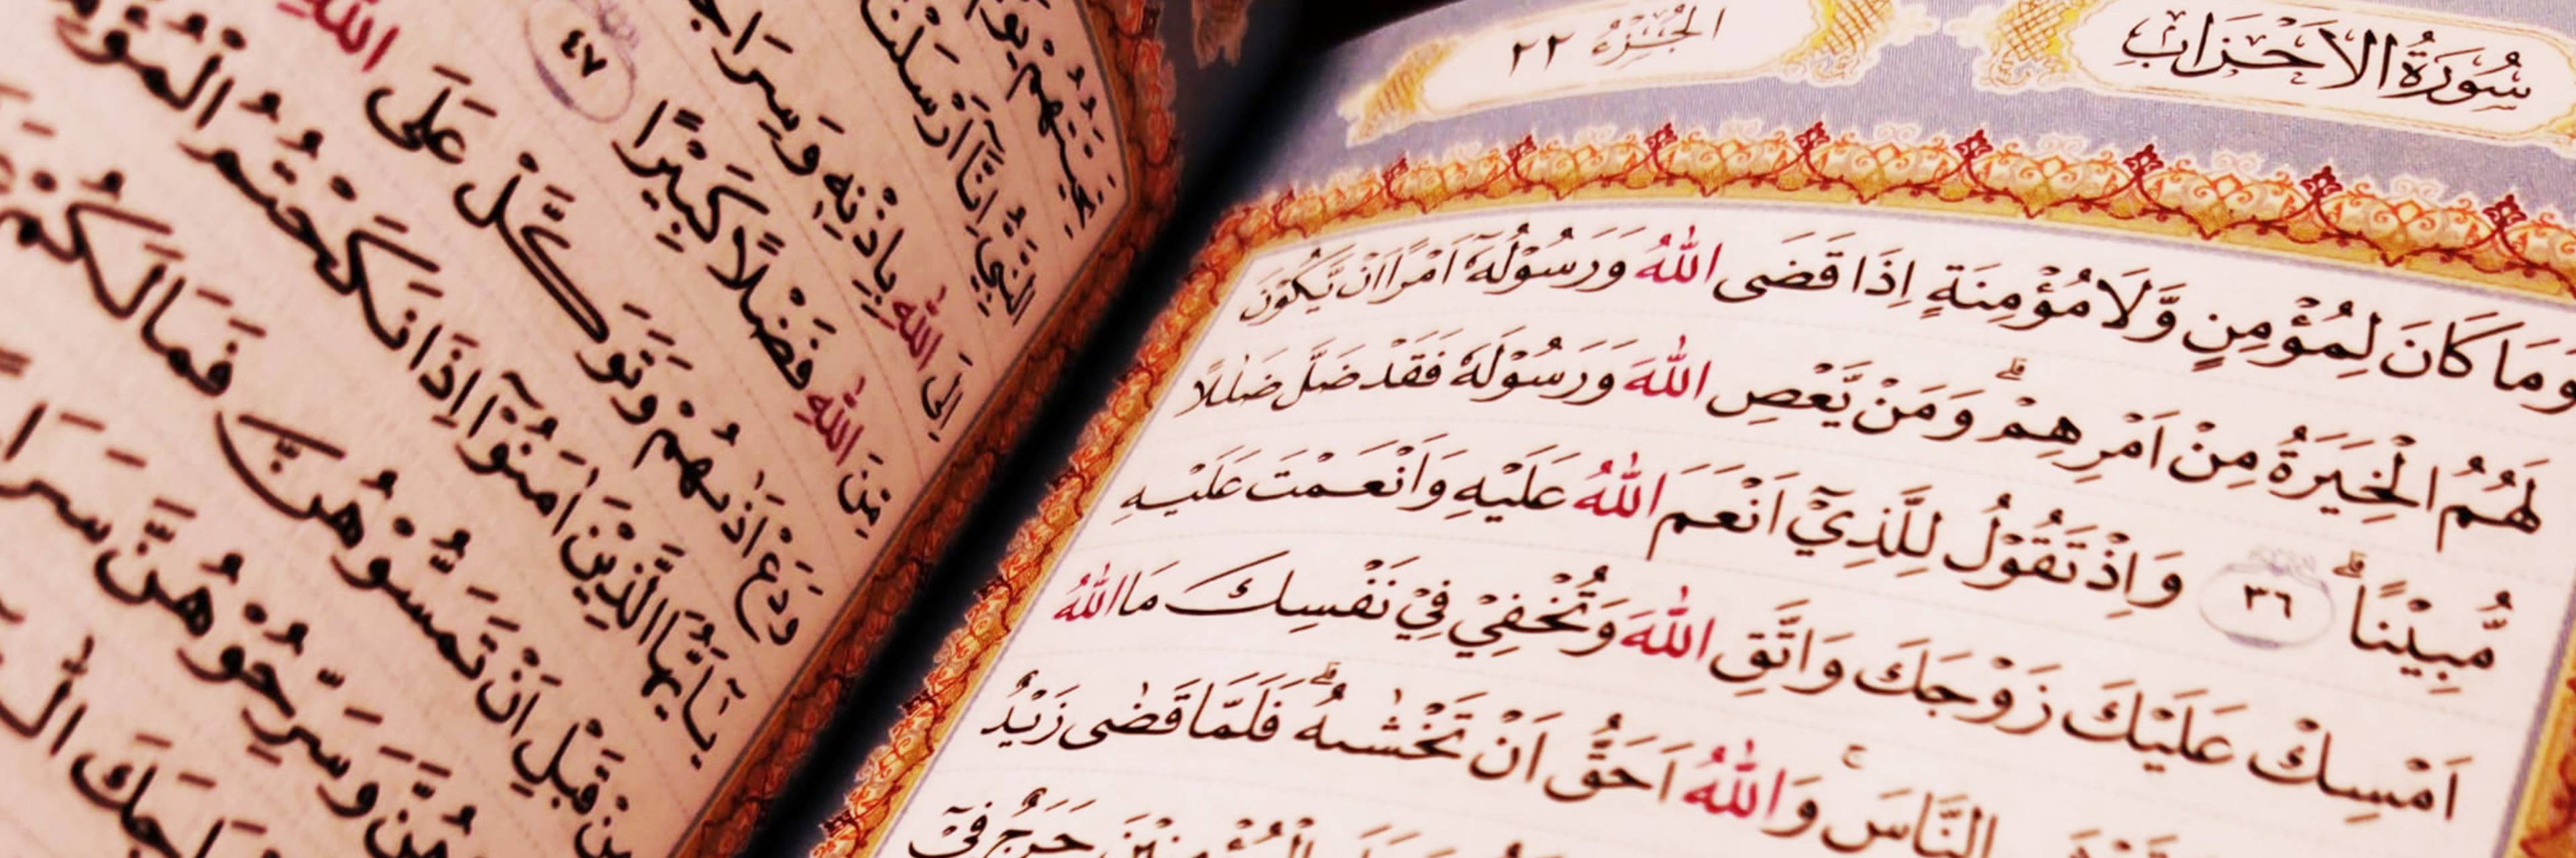 سُوْرَةُ الْاَحْزَابِ
الْجُزْءُ ٢٢
وَمَا كَانَ لِمُؤْمِنٍ وَّلَا مُؤْمِنَةٍ اِذَا قَضَى اللّٰهُ وَرَسُوْلُهٗٓ اَمْرًا اَنْ يَّكُوْنَ
لَهُمُ الْخِيَرَةُ مِنْ اَمْرِهِمْ ۗ وَمَنْ يَّعْصِ اللّٰهَ وَرَسُوْلَهٗ فَقَدْ ضَلَّ ضَلٰلًا
مُّبِيْنًا ۗ ٣٦ وَاِذْ تَقُوْلُ لِلَّذِيْٓ اَنْعَمَ اللّٰهُ عَلَيْهِ وَاَنْعَمْتَ عَلَيْهِ
اَمْسِكْ عَلَيْكَ زَوْجَكَ وَاتَّقِ اللّٰهَ وَتُخْفِيْ فِيْ نَفْسِكَ مَا اللّٰهُ
النَّاسَ ۚ وَاللّٰهُ اَحَقُّ اَنْ تَخْشٰىهُ ۗ فَلَمَّا قَضٰى زَيْدٌ
الْمُؤْمِنِيْنَ حَرَجٌ فِيْٓ
النَّبِيُّ اِنَّآ اَرْسَلْنٰ
اِلَى اللّٰهِ بِاِذْنِهٖ وَسِرَاجًا
مِّنَ اللّٰهِ فَضْلًا كَبِيْرًا ٤٧
وَدَعْ اَذٰىهُمْ وَتَوَكَّلْ عَلَى اللّٰهِ
يٰٓاَيُّهَا الَّذِيْنَ اٰمَنُوْٓا اِذَا نَكَحْتُمُ الْمُؤْمِ
مِنْ قَبْلِ اَنْ تَمَسُّوْهُنَّ فَمَا لَكُمْ
وَسَرِّحُوْهُنَّ سَرَا